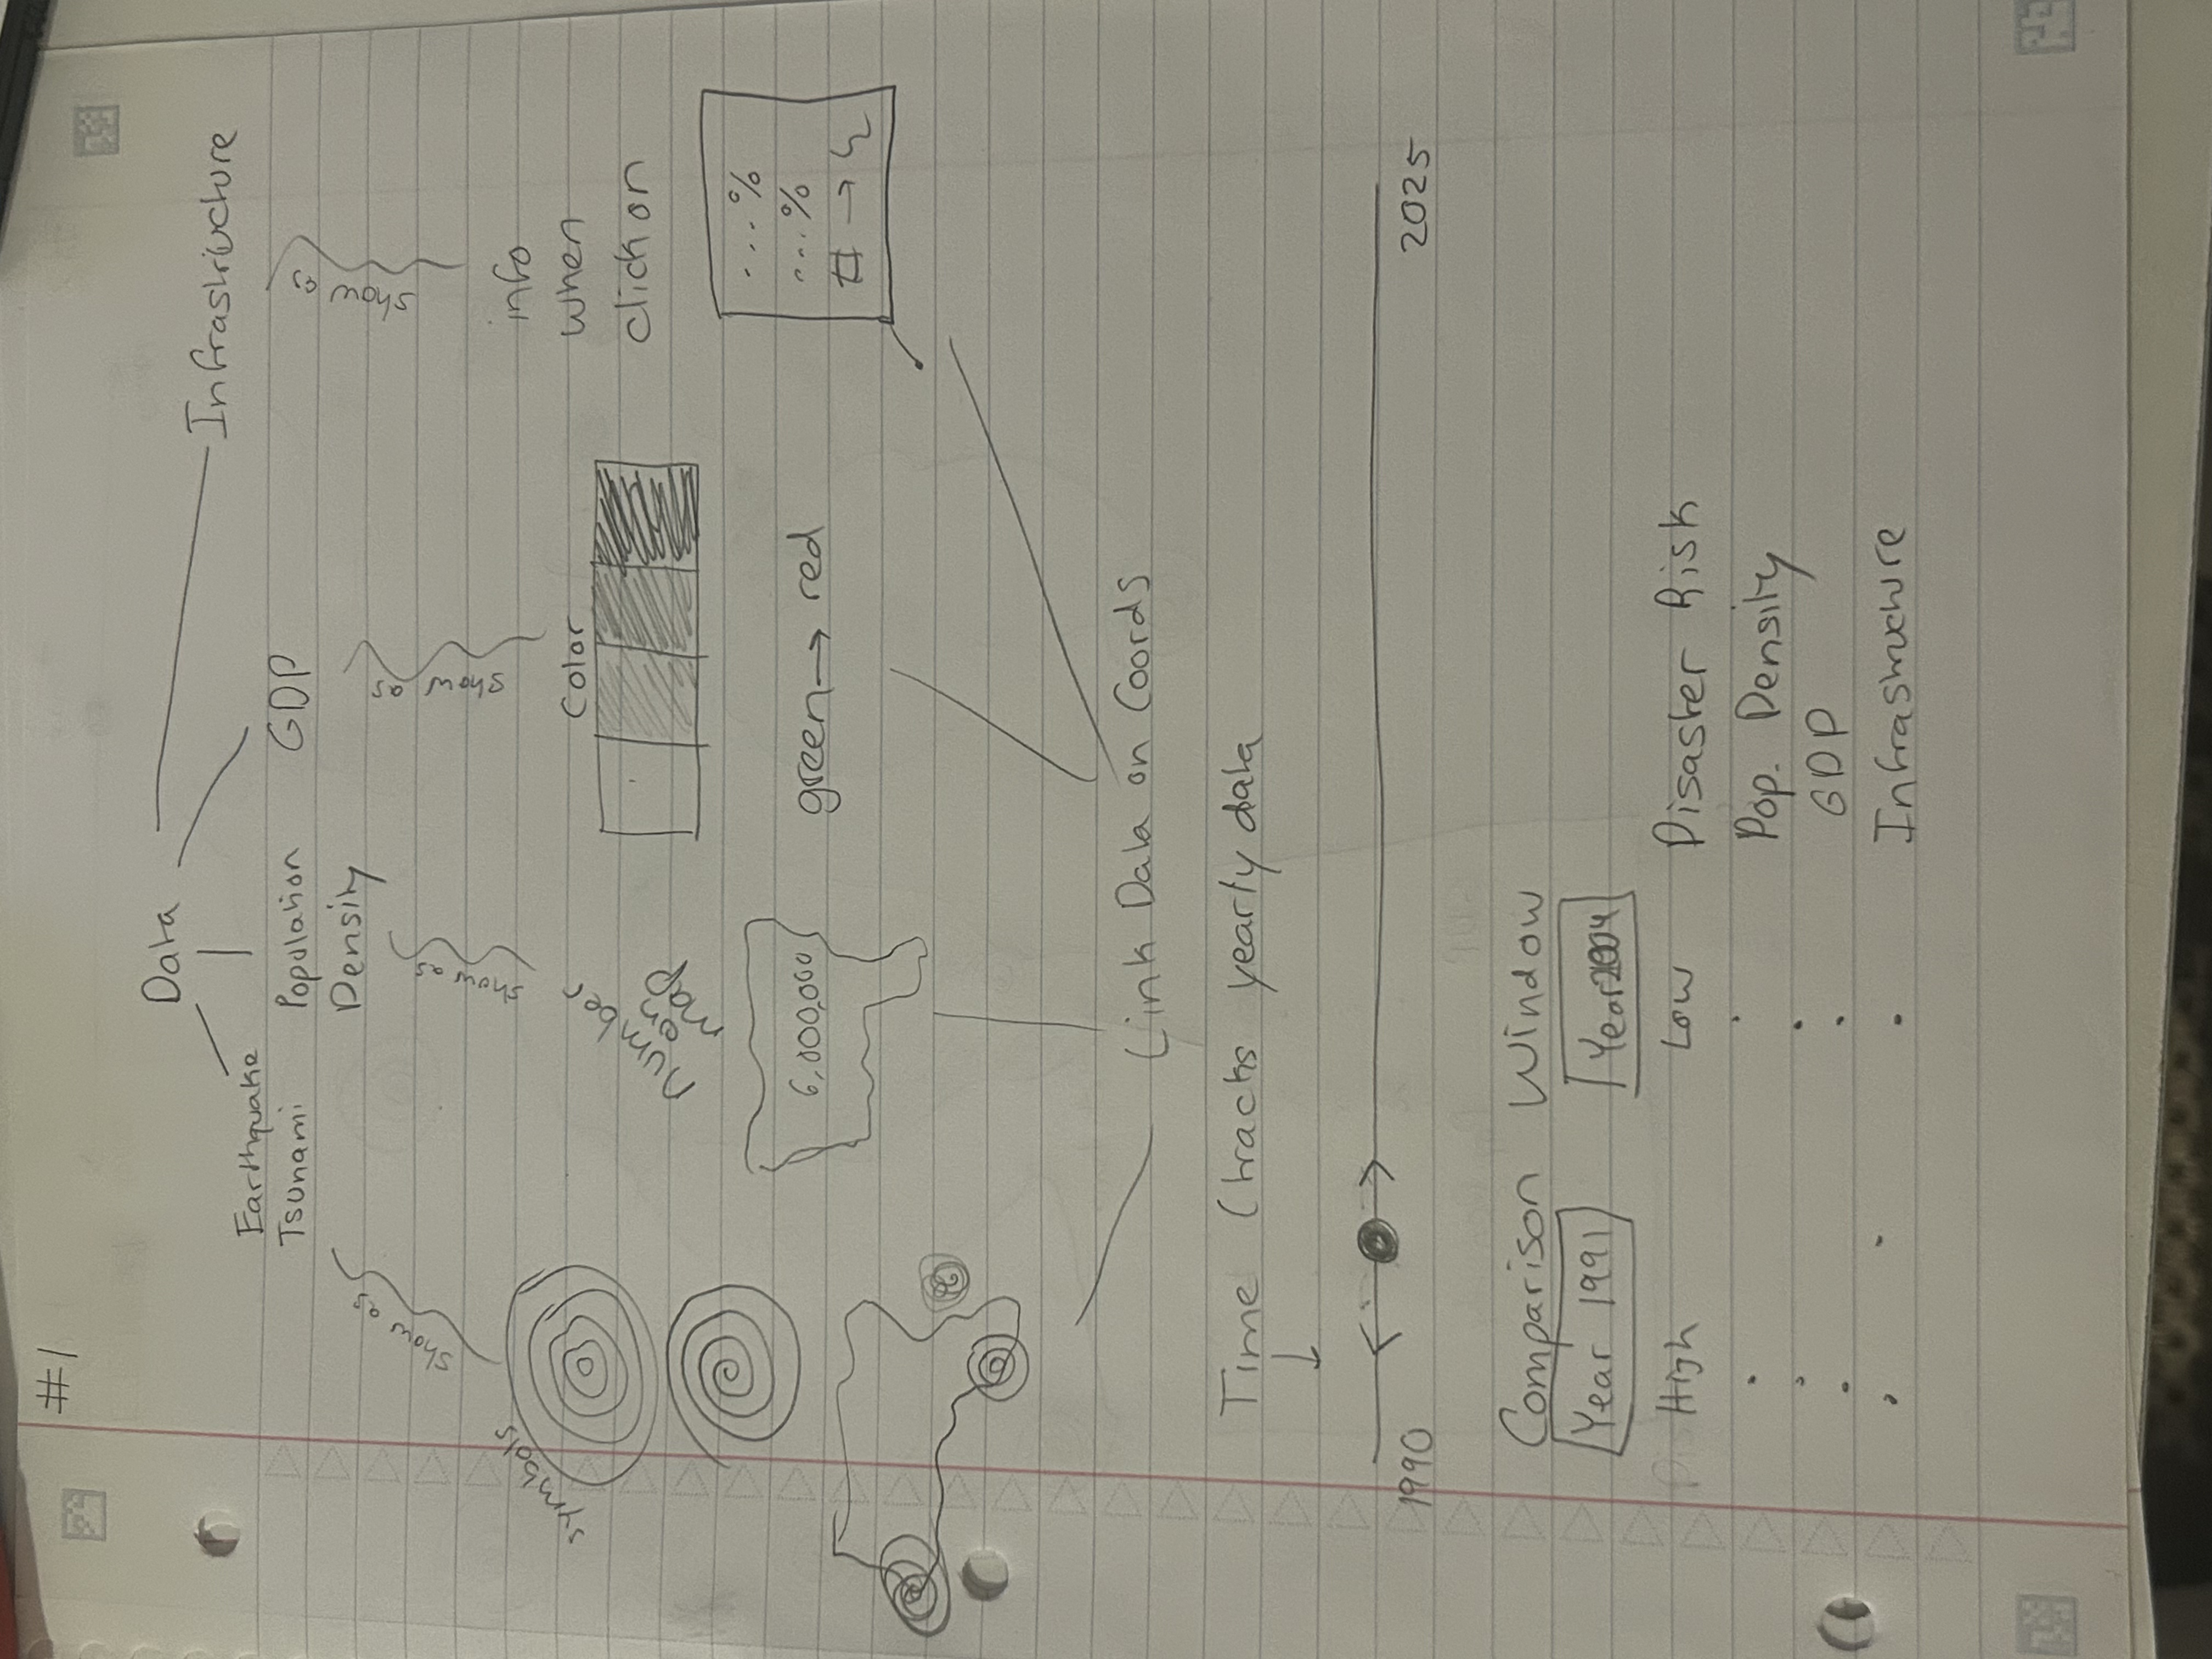 #1
Data
Infrastructure
Earthquake
Tsunami
Population
Density
GDP
show as
show as
show as
show as
symbols
number
on
map
Color
info
when
click on
6,000,000
green → red
...%
...%
# →
Link Data on Coords
Time (tracks yearly data
1990
2025
Comparison Window
Year 1991
Year 2004
High
Low
Disaster Risk
Pop. Density
GDP
Infrastructure